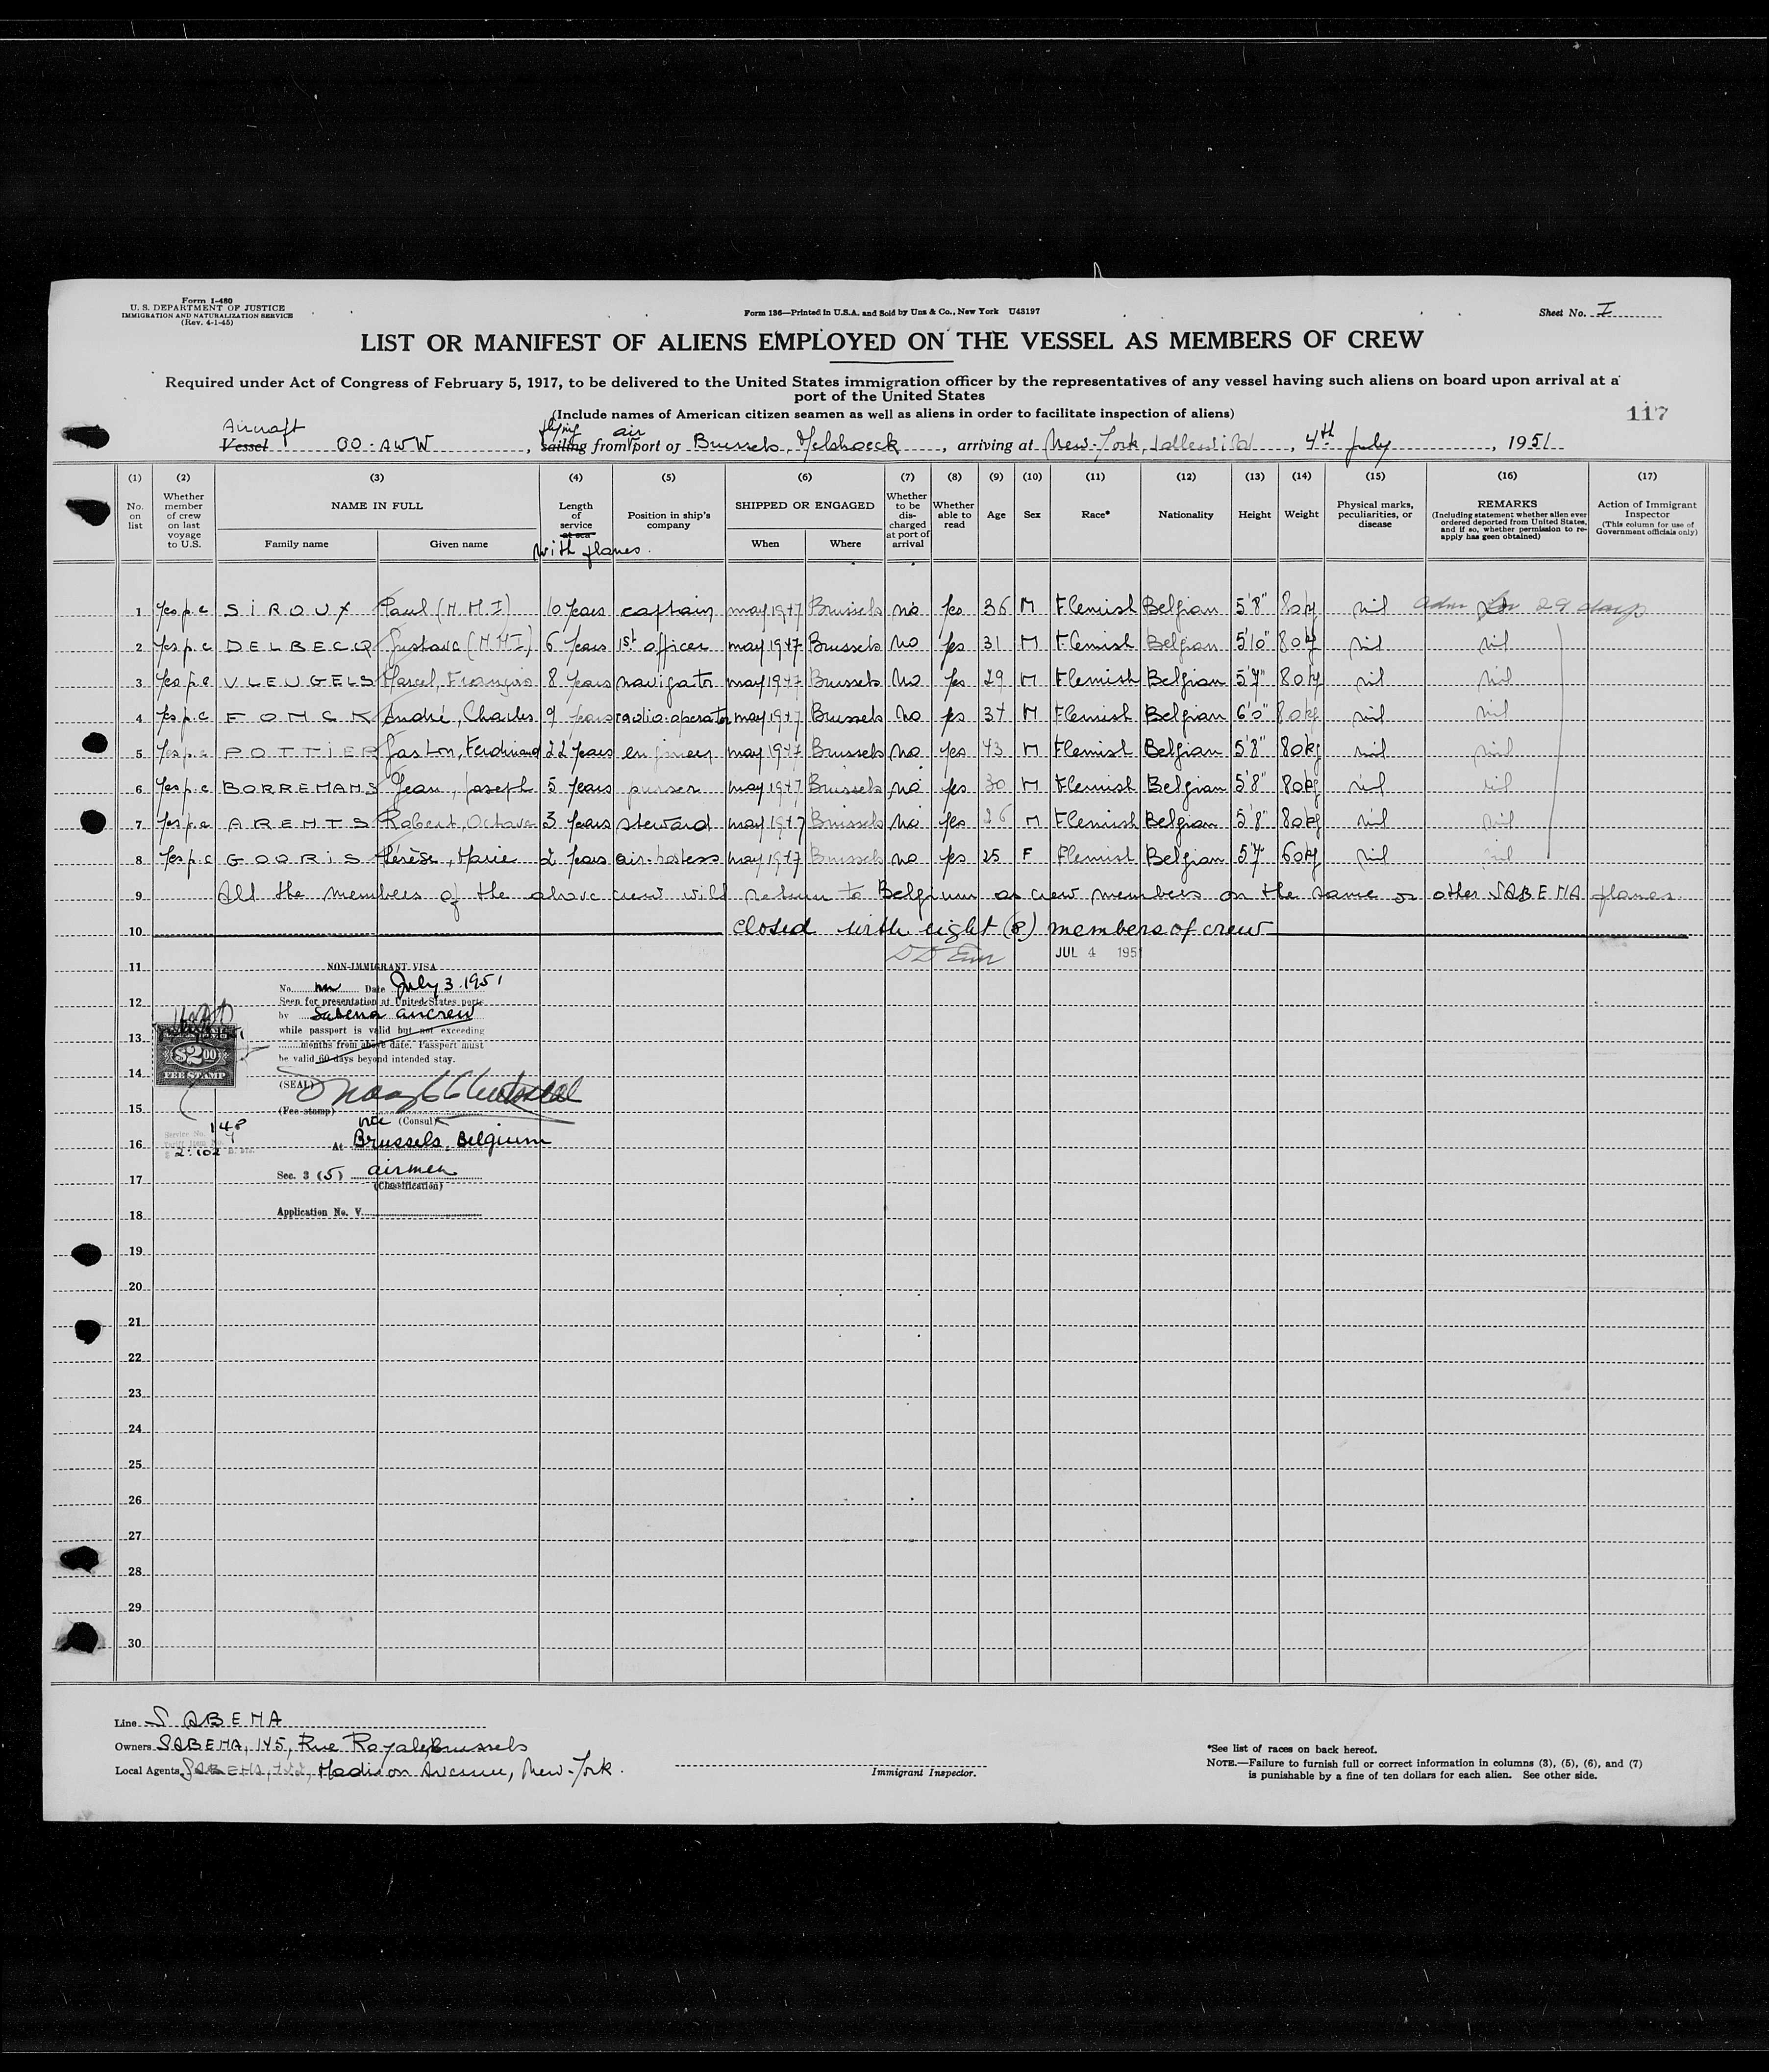 Form I-480
U. S. DEPARTMENT OF JUSTICE
IMMIGRATION AND NATURALIZATION SERVICE
(Rev. 4-1-45)
Form 136—Printed in U.S.A. and Sold by Unz & Co., New York U43197
Sheet No. I
LIST OR MANIFEST OF ALIENS EMPLOYED ON THE VESSEL AS MEMBERS OF CREW
Required under Act of Congress of February 5, 1917, to be delivered to the United States immigration officer by the representatives of any vessel having such aliens on board upon arrival at a
port of the United States
(Include names of American citizen seamen as well as aliens in order to facilitate inspection of aliens)
117
Aircraft flying air
Vessel OO-AWW, sailing from port of Brussels, Melsbroeck, arriving at New-York, Idlewild, 4th July, 1951
(1) (2) (3) (4) (5) (6) (7) (8) (9) (10) (11) (12) (13) (14) (15) (16) (17)
No. on list
Whether member of crew on last voyage to U.S.
NAME IN FULL
Family name
Given name
Length of service at sea
with planes.
Position in ship's company
SHIPPED OR ENGAGED
When
Where
Whether to be discharged at port of arrival
Whether able to read
Age
Sex
Race*
Nationality
Height
Weight
Physical marks, peculiarities, or disease
REMARKS
(Including statement whether alien ever ordered deported from United States, and if so, whether permission to re-apply has geen obtained)
Action of Immigrant Inspector
(This column for use of Government officials only)
1 Yes p.c SIROUX Paul (NMI) 10 Years captain may 1947 Brussels no yes 36 M Flemish Belgian 5'8" 80kg nil adm for 29 days
2 Yes p.c DELBECQ Gustave (NMI) 6 Years 1st officer may 1947 Brussels no yes 31 M Flemish Belgian 5'10" 80kg nil nil
3 Yes p.c VLEUGELS Marcel, François 8 Years navigator may 1947 Brussels no yes 29 M Flemish Belgian 5'7" 80kg nil nil
4 Yes p.c FONCK André, Charles 9 Years radio-operator may 1947 Brussels no yes 37 M Flemish Belgian 6'0" 80kg nil nil
5 Yes p.c POTTIER Gaston, Ferdinand 22 Years engineer may 1947 Brussels no yes 43 M Flemish Belgian 5'8" 80kg nil nil
6 Yes p.c BORREMANS Jean, Joseph 5 Years purser may 1947 Brussels no yes 30 M Flemish Belgian 5'8" 80kg nil nil
7 Yes p.c ARENTS Robert, Octave 3 Years steward may 1947 Brussels no yes 26 M Flemish Belgian 5'8" 80kg nil nil
8 Yes p.c GOORIS Thérèse, Marie 2 Years air-hostess may 1947 Brussels no yes 25 F Flemish Belgian 5'7" 60kg nil nil
9 All the members of the above crew will return to Belgium as crew members on the same or other SABENA planes.
10 Closed with eight (8) members of crew
11
JUL 4 1951
NON-IMMIGRANT VISA
No. Date July 3. 1951
12
Seen for presentation at United States ports
by Sabena aircrew
13
while passport is valid but not exceeding
months from above date. Passport must
be valid 60 days beyond intended stay.
$2.00
FEE STAMP
14
(SEAL)
15
(Fee stamp)
vice (Consul)
Service No. 148
Tariff Item No. 7
16
At Brussels, Belgium
17
Sec. 3 (5) airmen
(Classification)
18
Application No. V
19
20
21
22
23
24
25
26
27
28
29
30
Line SABENA
Owners SABENA, 145, Rue Royale, Brussels
Local Agents SABENA, Madison Avenue, New-York.
Immigrant Inspector.
*See list of races on back hereof.
NOTE.—Failure to furnish full or correct information in columns (3), (5), (6), and (7)
is punishable by a fine of ten dollars for each alien. See other side.